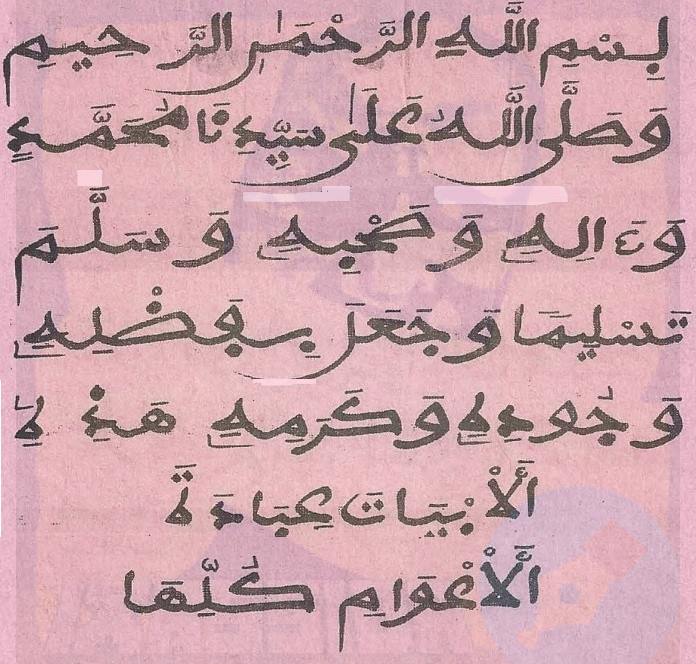 بِسْمِ اللَّهِ الرَّحْمَٰنِ الرَّحِيمِ
وَصَلَّى اللَّهُ عَلَى سَيِّدِنَا مُحَمَّدٍ
وَءَالِهِ وَصَحْبِهِ وَسَلَّمَ
تَسْلِيمًا وَجَعَلَ بِفَضْلِهِ
وَجُودِهِ وَكَرَمِهِ هَذِهِ
الْأَبْيَاتَ عِبَادَةَ
الْأَعْوَامِ كُلِّهَا